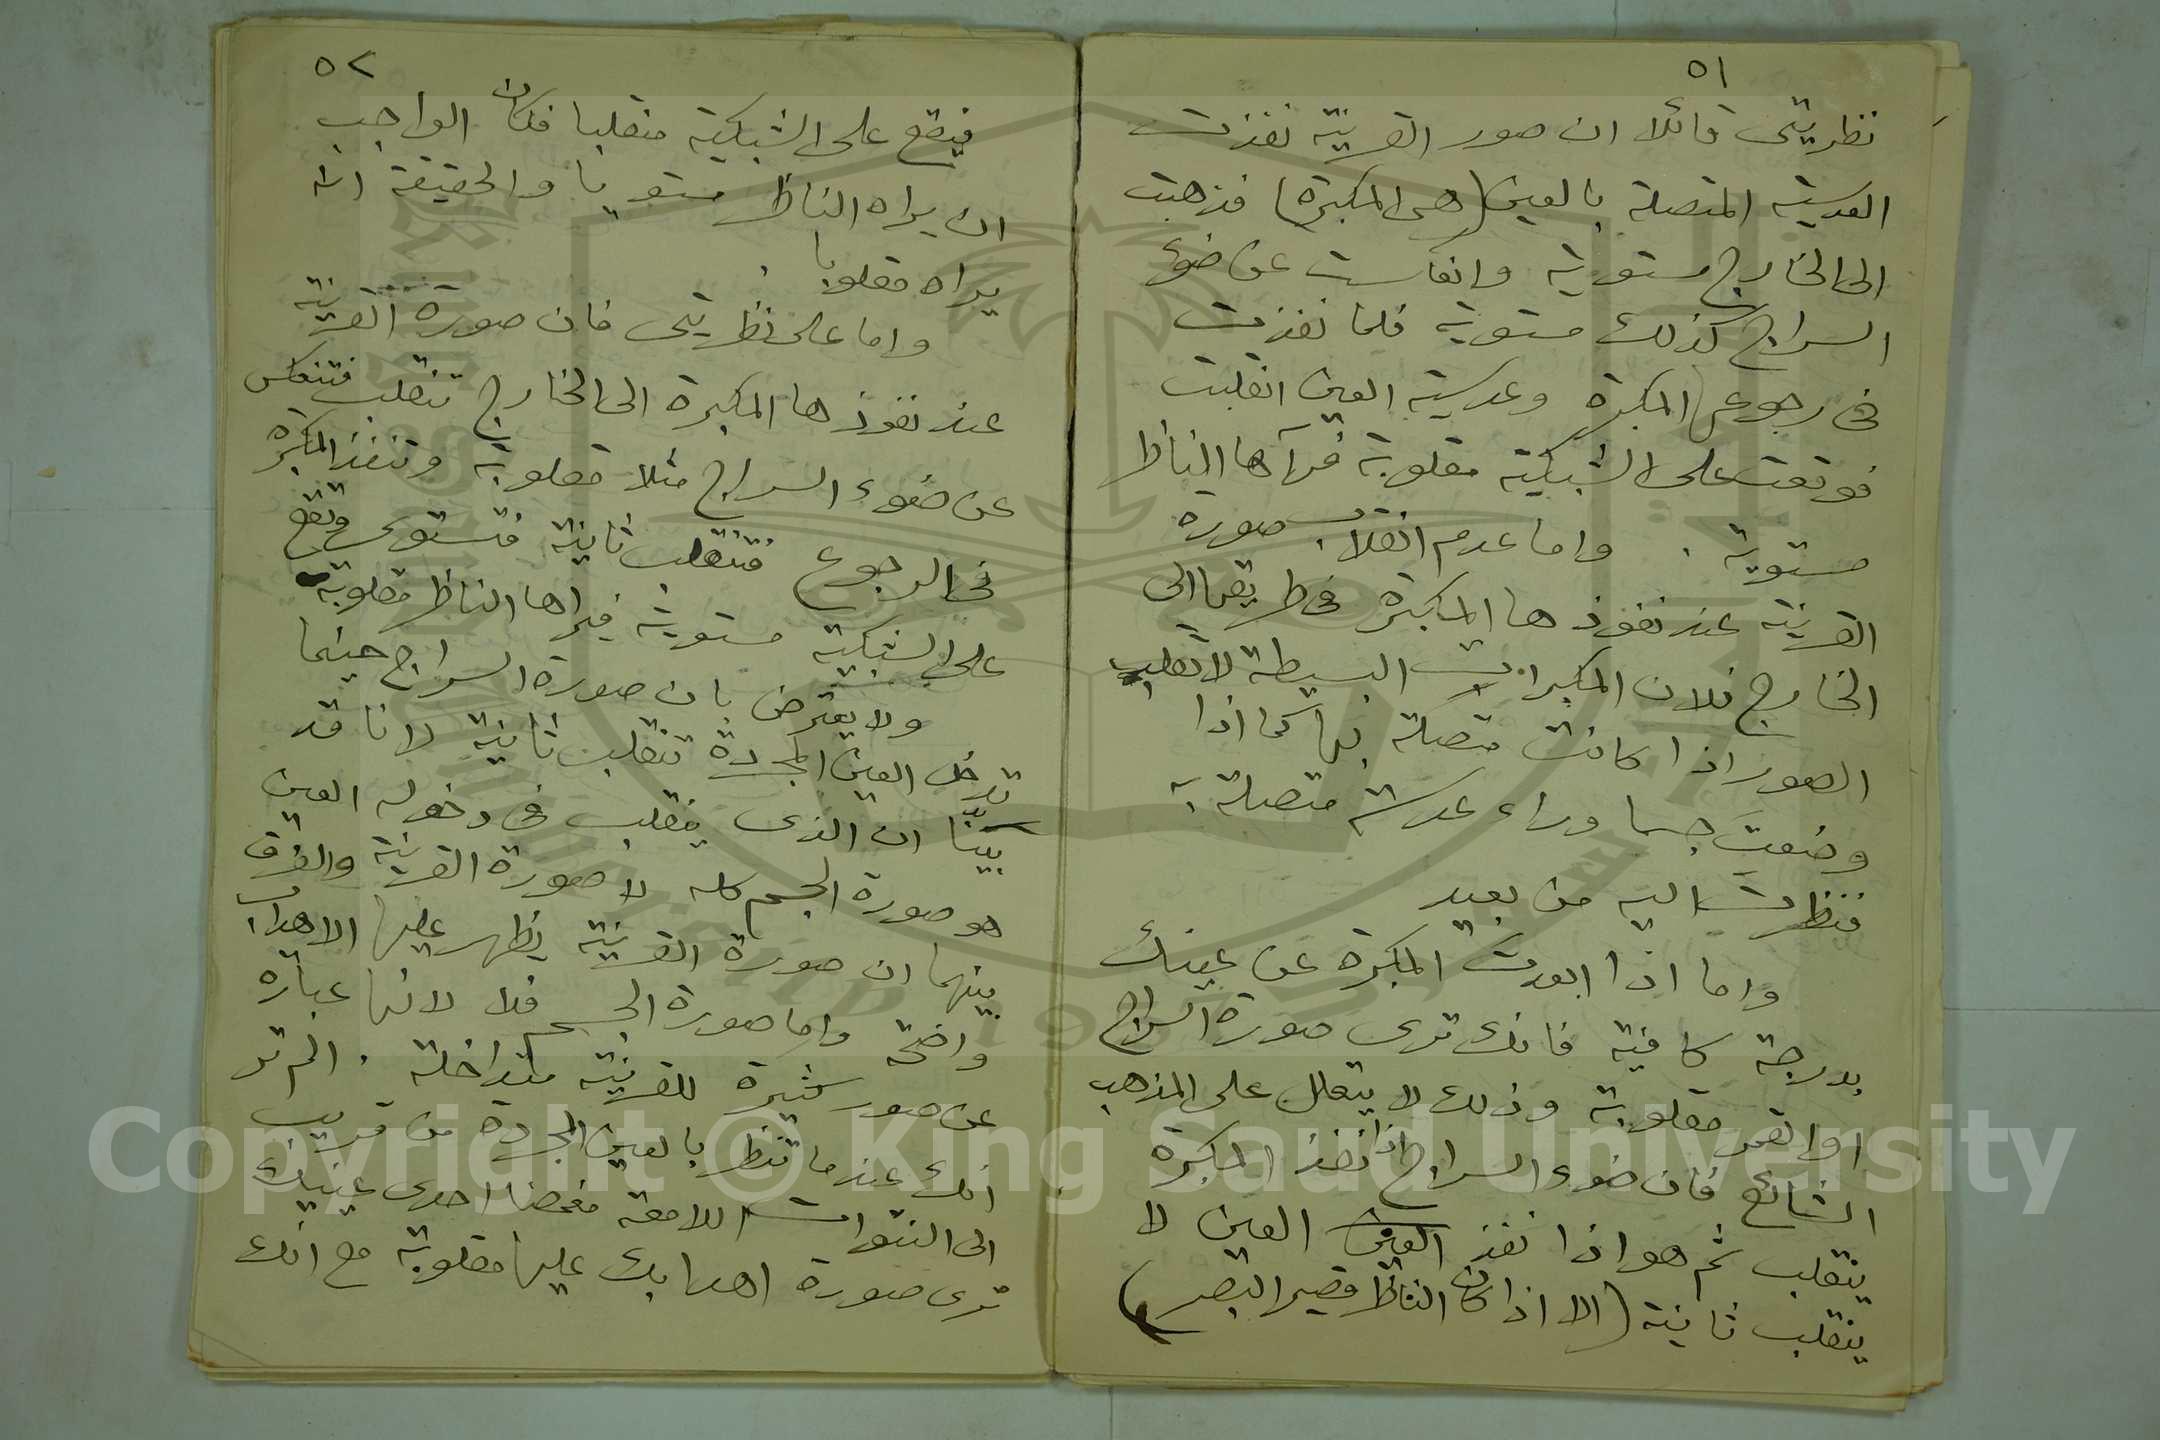 ٥١
نظريتى قائلا ان صور القرنية نفذت
العدسية المتصلة بالعين (هى المكبرة) فذهبت
الى الخارج مستوية وانعكست عن ضوء
السراج كذلك مستوية فلما نفذت
فى رجوعها المكبرة وعدسية العين انقلبت
فوقعت على الشبكية مقلوبة فرآها الناظر
مستوية . واما عدم انقلاب صورة
القرنية عند نفوذها المكبرة فى طريقها الى
الخارج فلان المكبرات البسيطة لا تقلب
الصور اذا كانت متصلة بها كما اذا
وضعت جسما وراء عدسة متصلة به
فنظرت اليه من بعيد
واما اذا ابعدت المكبرة عن عينك
بدرجة كافية فانك ترى صورة السراج
او القمر مقلوبة وذلك لا يتعلل على المذهب
الشائع فان ضوء السراج اذا نفذ المكبرة
ينقلب ثم هو اذا نفذ العين العين لا
ينقلب ثانية (الا اذا كان الناظر قصير البصر)
٥٢
فيقع على الشبكية منقلبا فكان الواجب
ان يراه الناظر مستويا والحقيقة انه
يراه مقلوبا .
واما على نظريتى فان صورة القرنية
عند نفوذها المكبرة الى الخارج تنقلب فتنعكس
عن ضوء السراج مثلا مقلوبة وتنفذ المكبرة
فى الرجوع فتنقلب ثانية فتستوى وتقع
على الشبكية مستوية فيراها الناظر مقلوبة
ولا يعترض بان صورة السراج حينما
تدخل العين المجردة تنقلب ثانية لانا قد
بيّنا ان الذى ينقلب فى دخوله العين
هو صورة الجسم كله لا صورة القرنية والفرق
بينهما ان صورة القرنية يظهر عليها الاهداب
واضحة واما صورة الجسم فلا لانها عبارة
عن صور كثيرة للقرنية متداخلة . الم تر
انك عندما تنظر بالعين المجردة من قريب
الى النتوات اللامعة مغمضا احدى عينيك
ترى صورة اهدابك عليها مقلوبة مع انك
Copyright © King Saud University